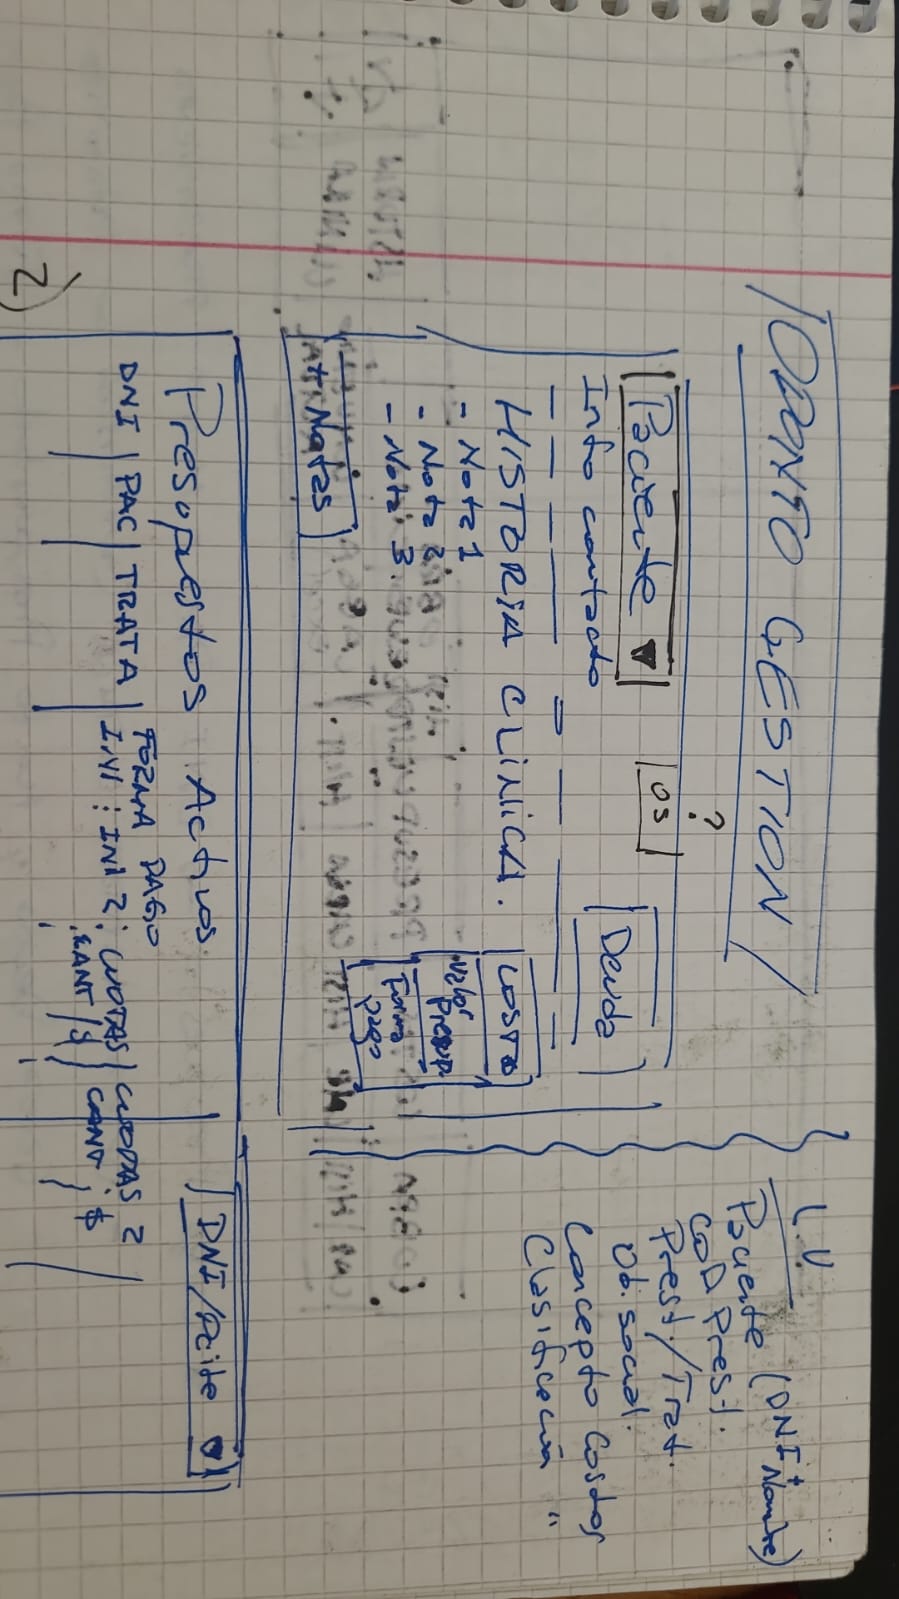 ODONTO GESTION
?
Paciente ▼
OS
Deuda
Info contacto
HISTORIA CLINICA.
- Nota 1
- Nota 2
- Nota 3.
+ Notas
COSTO
Valor
Presup.
Forma
pago
L.V.
Paciente (DNI + Nombre)
COD Prest.
Prest./Trat.
Ob. social.
Concepto Costos
Clasificación "
Presupuestos Activos
DNI/Pcite ▼
FORMA PAGO
DNI | PAC | TRATA | INI : INI 2 : CUOTAS | CUOTAS 2
CANT / $ | CANT ; $
2)